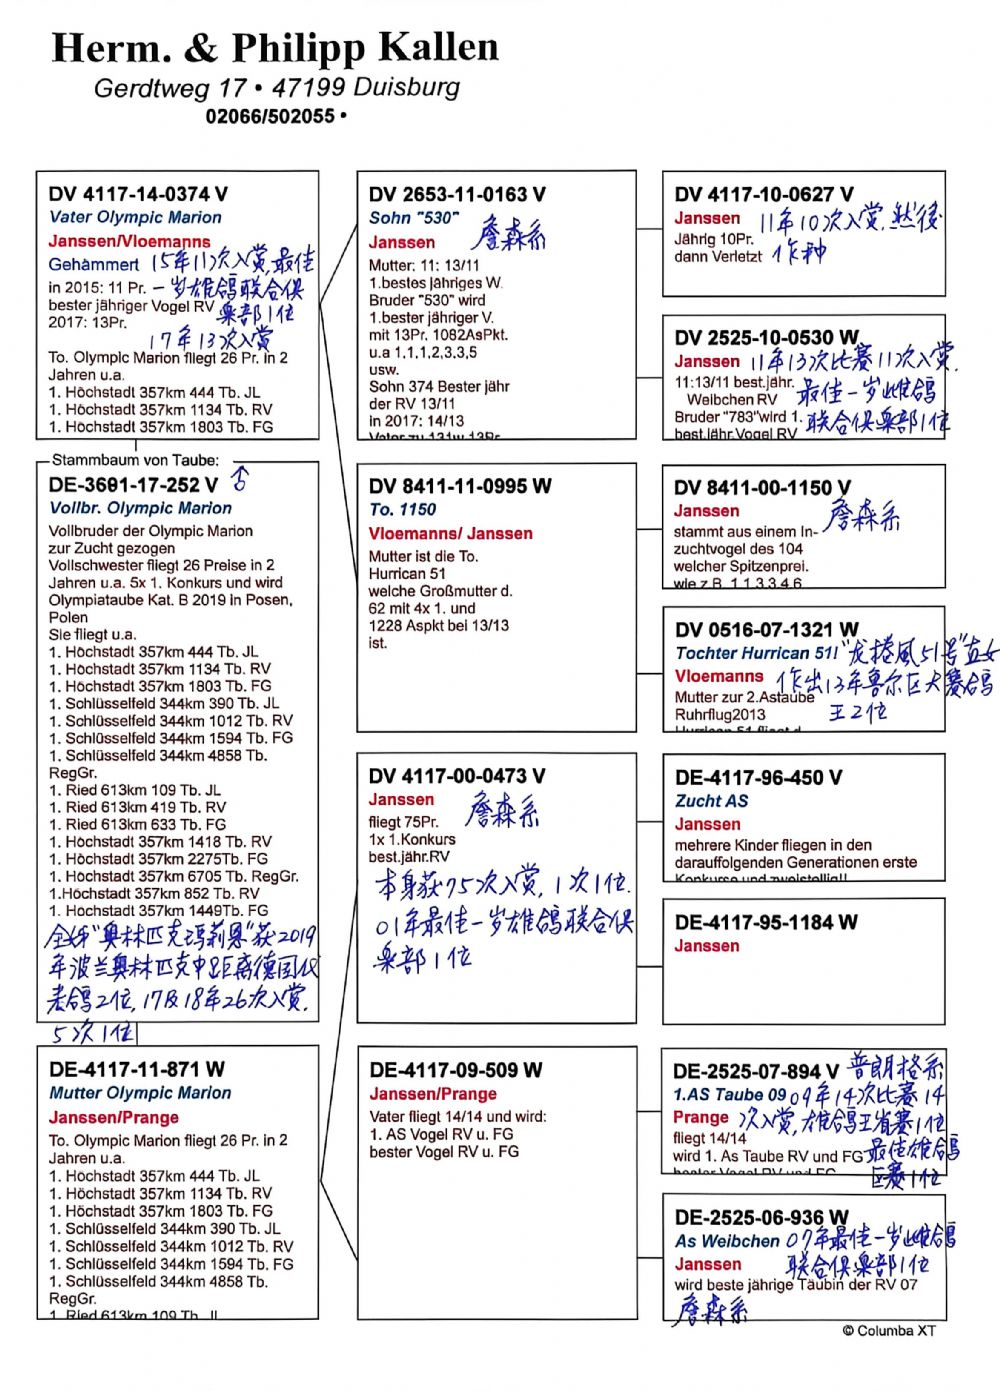 Herm. & Philipp Kallen
Gerdtweg 17 • 47199 Duisburg
02066/502055 •
DV 4117-14-0374 V
Vater Olympic Marion
Janssen/Vloemanns
Gehämmert 15年11次入赏,最佳
in 2015: 11 Pr. 一岁雄鸽联合俱
bester jähriger Vogel RV 乐部1位
2017: 13Pr.
17年13次入赏
To. Olympic Marion fliegt 26 Pr. in 2
Jahren u.a.
1. Höchstadt 357km 444 Tb. JL
1. Höchstadt 357km 1134 Tb. RV
1. Höchstadt 357km 1803 Tb. FG
Stammbaum von Taube:
DE-3601-17-252 V ♂
Vollbr. Olympic Marion
Vollbruder der Olympic Marion
zur Zucht gezogen
Vollschwester fliegt 26 Preise in 2
Jahren u.a. 5x 1. Konkurs und wird
Olympiataube Kat. B 2019 in Posen,
Polen
Sie fliegt u.a.
1. Höchstadt 357km 444 Tb. JL
1. Höchstadt 357km 1134 Tb. RV
1. Höchstadt 357km 1803 Tb. FG
1. Schlüsselfeld 344km 390 Tb. JL
1. Schlüsselfeld 344km 1012 Tb. RV
1. Schlüsselfeld 344km 1594 Tb. FG
1. Schlüsselfeld 344km 4858 Tb.
RegGr.
1. Ried 613km 109 Tb. JL
1. Ried 613km 419 Tb. RV
1. Ried 613km 633 Tb. FG
1. Höchstadt 357km 1418 Tb. RV
1. Höchstadt 357km 2275Tb. FG
1. Höchstadt 357km 6705 Tb. RegGr.
1.Höchstadt 357km 852 Tb. RV
1. Höchstadt 357km 1449Tb. FG
全妹"奥林匹克玛莉恩"获2019
年波兰奥林匹克中距离德国代
表鸽2位,17及18年26次入赏.
5次1位
DE-4117-11-871 W
Mutter Olympic Marion
Janssen/Prange
To. Olympic Marion fliegt 26 Pr. in 2
Jahren u.a.
1. Höchstadt 357km 444 Tb. JL
1. Höchstadt 357km 1134 Tb. RV
1. Höchstadt 357km 1803 Tb. FG
1. Schlüsselfeld 344km 390 Tb. JL
1. Schlüsselfeld 344km 1012 Tb. RV
1. Schlüsselfeld 344km 1594 Tb. FG
1. Schlüsselfeld 344km 4858 Tb.
RegGr.
1. Ried 613km 109 Tb. JL
DV 2653-11-0163 V
Sohn "530"
Janssen 詹森系
Mutter: 11: 13/11
1.bestes jähriges W.
Bruder "530" wird
1.bester jähriger V.
mit 13Pr. 1082AsPkt.
u.a 1,1,1,2,3,3,5
usw.
Sohn 374 Bester jähr
der RV 13/11
In 2017: 14/13
Vater zu 131w 13Pr
DV 8411-11-0995 W
To. 1150
Vloemanns/ Janssen
Mutter ist die To.
Hurrican 51
welche Großmutter d.
62 mit 4x 1. und
1228 Aspkt bei 13/13
ist.
DV 4117-00-0473 V
Janssen 詹森系
fliegt 75Pr.
1x 1.Konkurs
best.jähr.RV
本身获75次入赏,1次1位.
01年最佳一岁雄鸽联合俱
乐部1位
DE-4117-09-509 W
Janssen/Prange
Vater fliegt 14/14 und wird:
1. AS Vogel RV u. FG
bester Vogel RV u. FG
DV 4117-10-0627 V
Janssen 11年10次入赏.然後
Jährig 10Pr.
dann Verletzt 作种
DV 2525-10-0530 W
Janssen 11年13次比赛11次入赏.
11:13/11 best.jähr. 最佳一岁雌鸽
Weibchen RV
Bruder "783"wird 1. 联合俱乐部1位
best.jähr.Vogel RV
DV 8411-00-1150 V
Janssen 詹森系
stammt aus einem In-
zuchtvogel des 104
welcher Spitzenprei.
wie z.B. 1,1,3,3,4,6
DV 0516-07-1321 W
Tochter Hurrican 51! "龙捲風51号"直女
Vloemanns 作出13年鲁尔区大赛鸽
Mutter zur 2.Astaube 王2位
Ruhrflug2013
Hurrican 51 fliegt d
DE-4117-96-450 V
Zucht AS
Janssen
mehrere Kinder fliegen in den
darauffolgenden Generationen erste
Konkurse und zweistellig!!
DE-4117-95-1184 W
Janssen
DE-2525-07-894 V 普朗格系
1.AS Taube 09 09年14次比赛14
Prange 次入赏,雄鸽王省赛1位
fliegt 14/14
wird 1. As Taube RV und FG 最佳雄鸽
bester Vogel RV und FG 区赛1位
DE-2525-06-936 W
As Weibchen 07年最佳一岁雌鸽
Janssen 联合俱乐部1位
wird beste jährige Täubin der RV 07
詹森系
© Columba XT